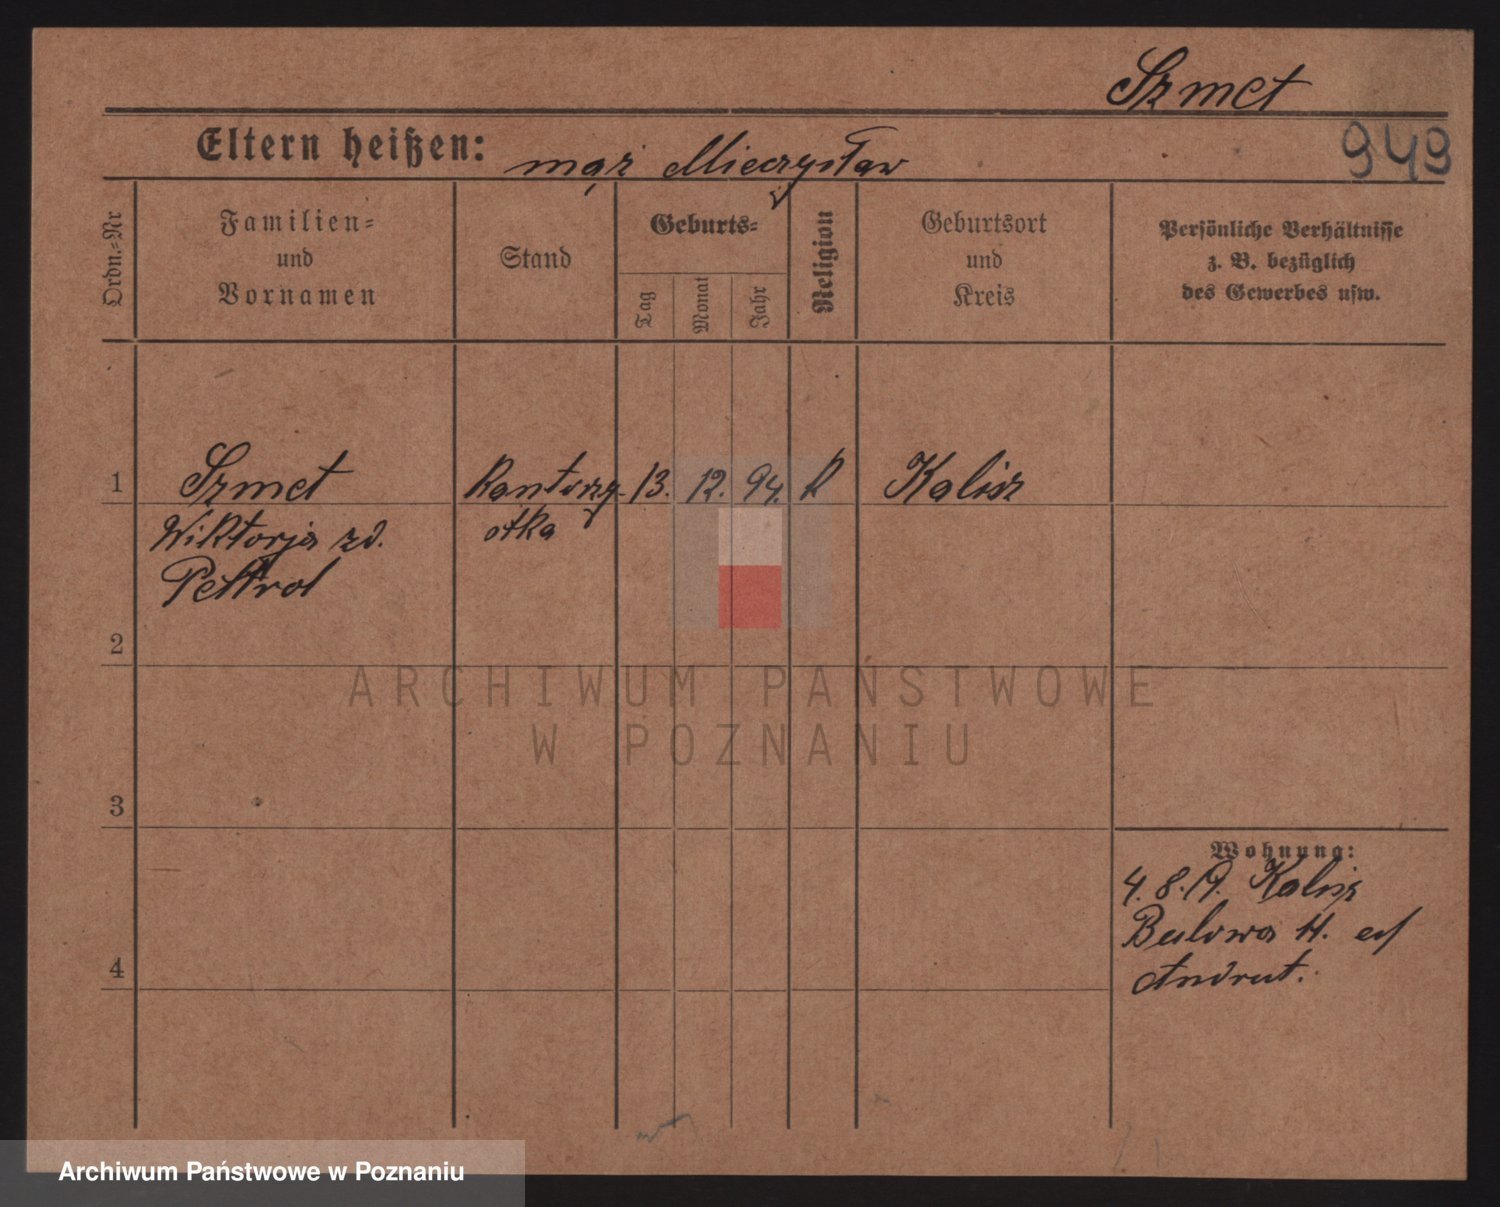 Szmet
949
Eltern heißen: mąż Mieczysław
Ordn.=Nr
Familien=
und
Vornamen
Stand
Geburts=
Tag
Monat
Jahr
Religion
Geburtsort
und
Kreis
Persönliche Verhältnisse
z. B. bezüglich
des Gewerbes usw.
1 Szmet Kantorzy- 13. 12. 94. R Kalisz
Wiktorja zd. otka
Pettrol
2
ARCHIWUM PAŃSTWOWE
W POZNANIU
3
Wohnung:
4. 8. 19. Kalisz
Bulowa 11.
Andrut.
4
Archiwum Państwowe w Poznaniu